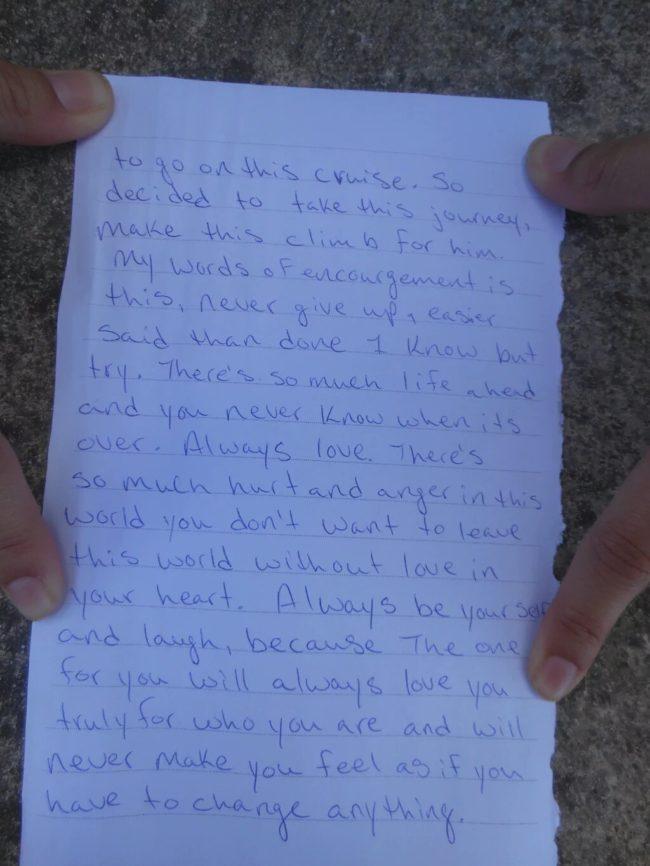 to go on this cruise. So
decided to take this journey,
make this climb for him.
My words of encourgement is
this, never give up, easier
said than done I know but
try. There's so much life ahead
and you never know when its
over. Always love. There's
so much hurt and anger in this
world you don't want to leave
this world without love in
your heart. Always be yourself
and laugh, because The one
for you will always love you
truly for who you are and will
never make you feel as if you
have to change anything.